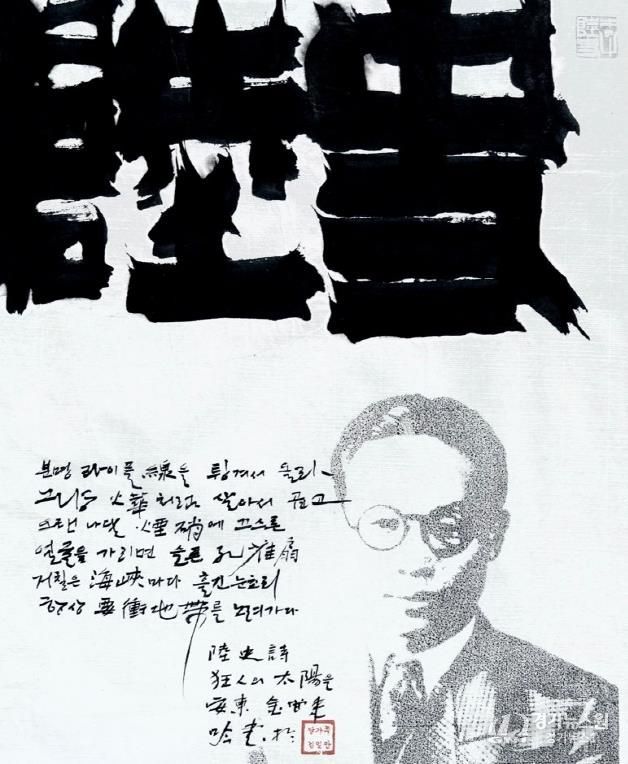 분명 라이플線을 튕겨서 올라
그냥 火華처럼 살아서 곱고
오랜 나달 煙硝에 끄스른
얼굴을 가리면 슬픈 孔雀扇
거칠은 海峽마다 흘긴 눈초리
항상 要衝地帶를 노려가다
陸史詩
狂人의 太陽을
安東